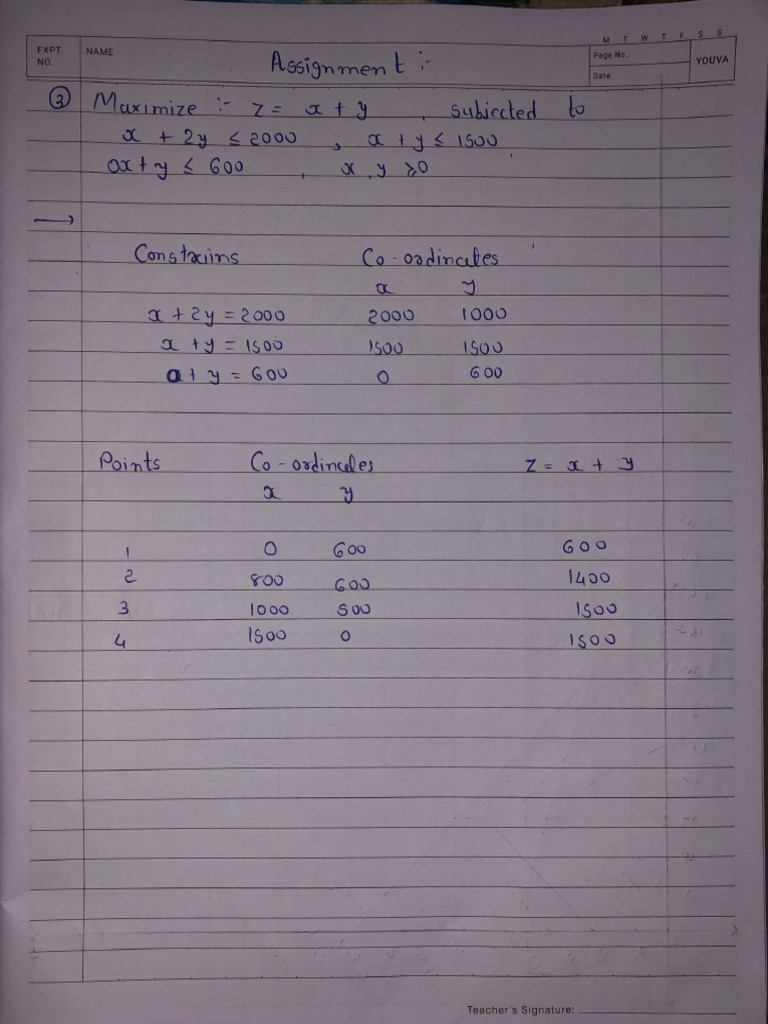 M T W T F S S
EXPT. NO. NAME Assignment :- Page No.: YOUVA
Date:
③ Maximize :- z = x + y , subjected to
x + 2y ≤ 2000 , x + y ≤ 1500
0x + y ≤ 600 , x, y ≥ 0
→
Constrains Co-ordinates
x y
x + 2y = 2000 2000 1000
x + y = 1500 1500 1500
0 + y = 600 0 600
Points Co-ordinales z = x + y
x y
1 0 600 600
2 800 600 1400
3 1000 500 1500
4 1500 0 1500
Teacher's Signature: